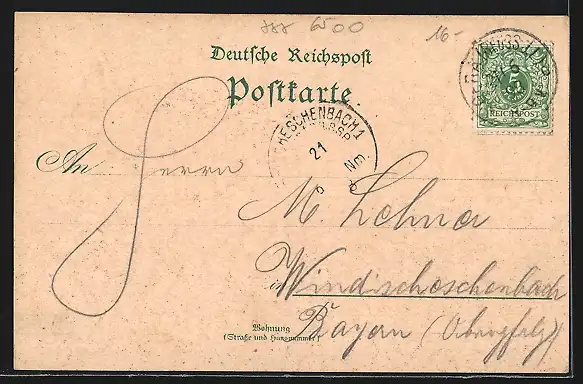 6500
16-
Deutsche Reichspost
Postkarte
5
REICHSPOST
HESCHENBACH 1
21
Nm.
An Herrn
M. Lehna
in Windischeschenbach
Wohnung
(Straße und Hausnummer)
Bayern (Oberpfalz)